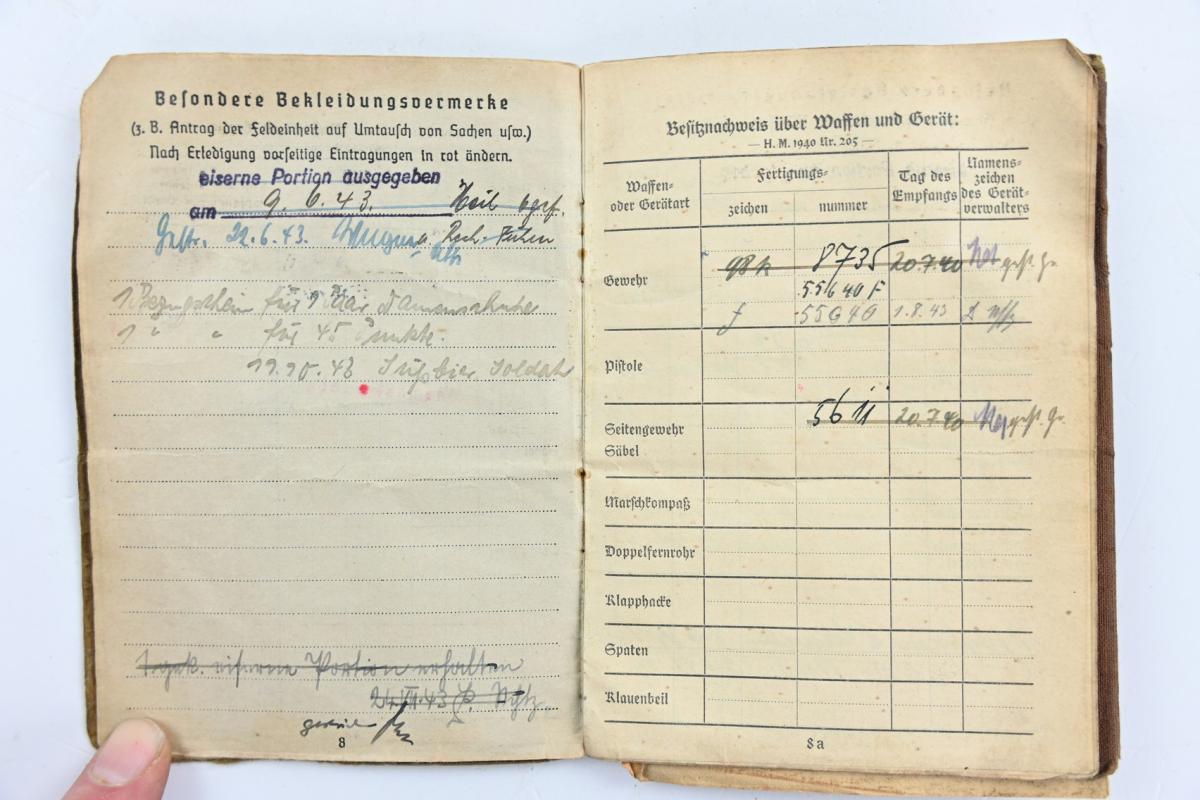 Besondere Bekleidungsvermerke
(z. B. Antrag der Feldeinheit auf Umtausch von Sachen usw.)
Nach Erledigung vorseitige Eintragungen in rot ändern.
eiserne Portion ausgegeben
am 9. 6. 43.
22.6.43.
1 Bezugschein für 1 Paar Damenschuhe
1 " " für 45 Punkte.
19.10.43 Soldat
eiserne Portion erhalten
24.VII.43
8
Besitznachweis über Waffen und Gerät:
— H. M. 1940 Nr. 205 —
Waffen- oder Gerätart
Fertigungs-
zeichen
nummer
Tag des Empfangs
Namens-zeichen des Gerät-verwalters
Gewehr
8735 20.7.40
55640 F
f 55640 1.8.43
Pistole
Seitengewehr
Säbel
5611 20.7.40
Marschkompaß
Doppelfernrohr
Klapphacke
Spaten
Klauenbeil
8a